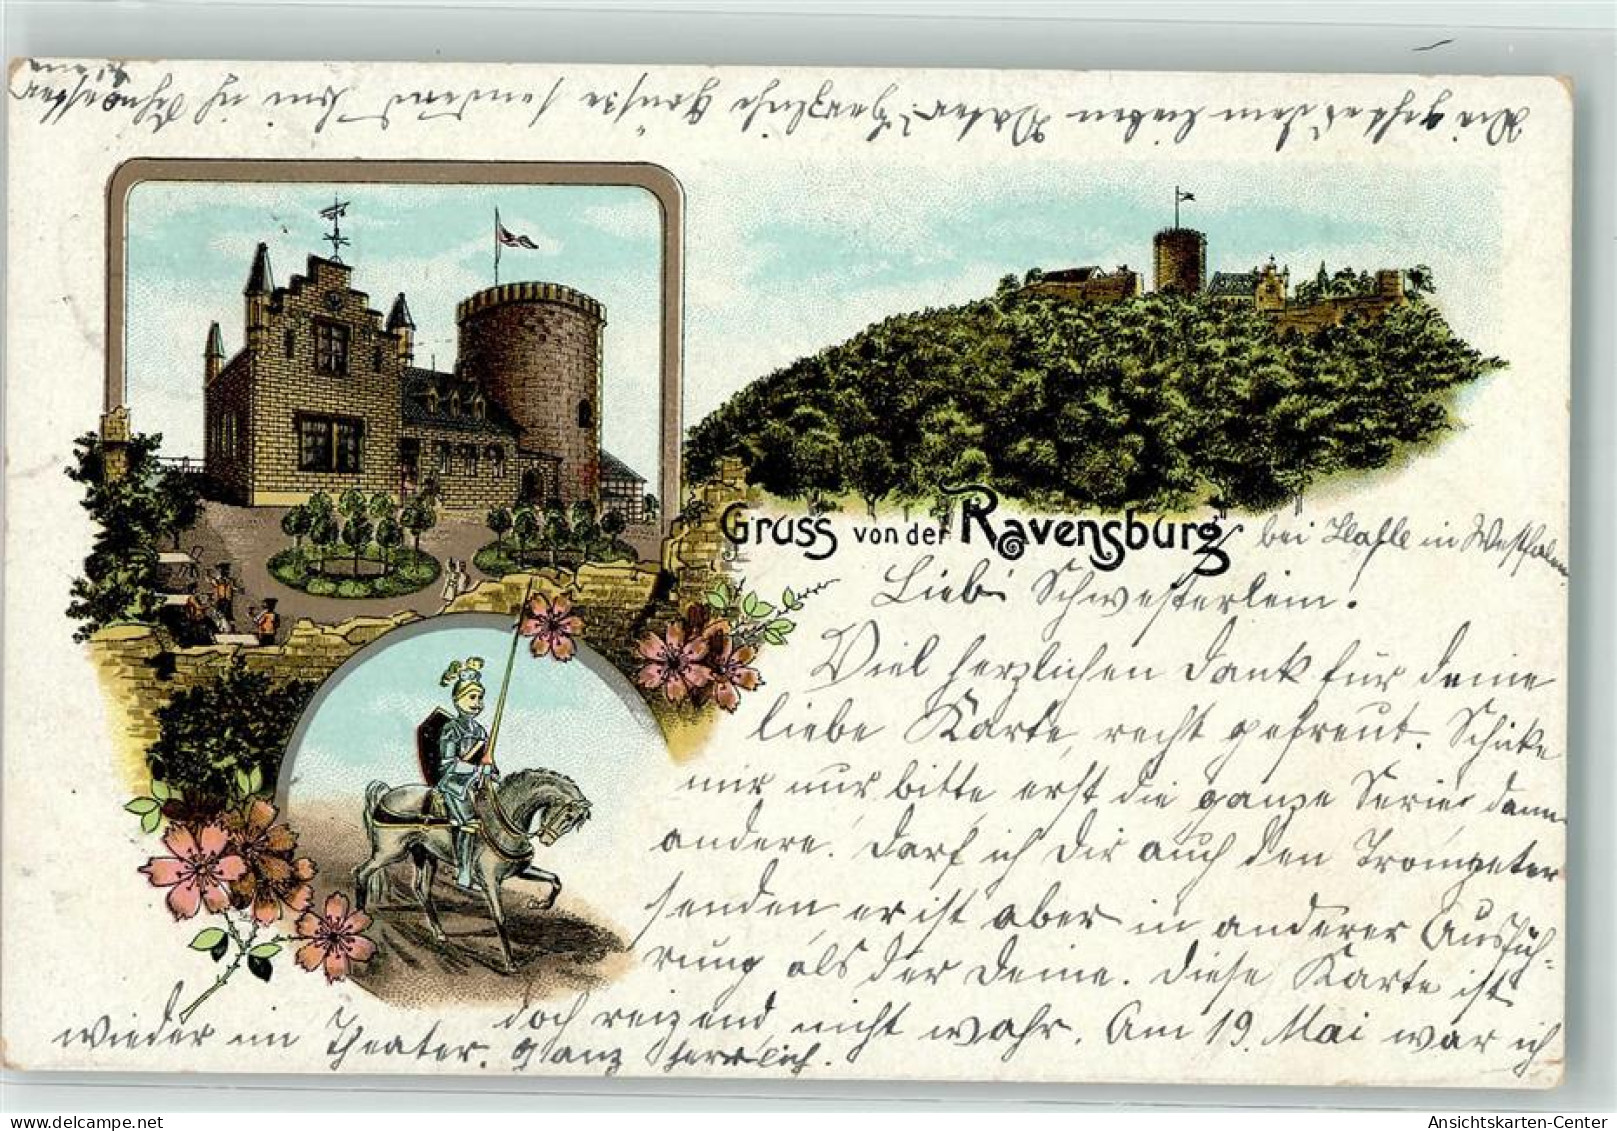 Gruss von der Ravensburg
bei Halle in Westfalen
Liebes Schwesterlein.
Viel herzlichen Dank für Deine
liebe Karte, recht gefreut. Schicke
mir nur bitte erst die ganze Serie dann
andere. Darf ich Dir auch den Trompeter
senden, er ist aber in anderer Ausfüh-
rung als der Deine. Diese Karte ist
doch reizend, nicht wahr. Am 19. Mai war ich
wieder im Theater. ganz herrlich.
dem lieben Vater! Herzliche Grüsse sendend bin ich
Ansichtskarten-Center